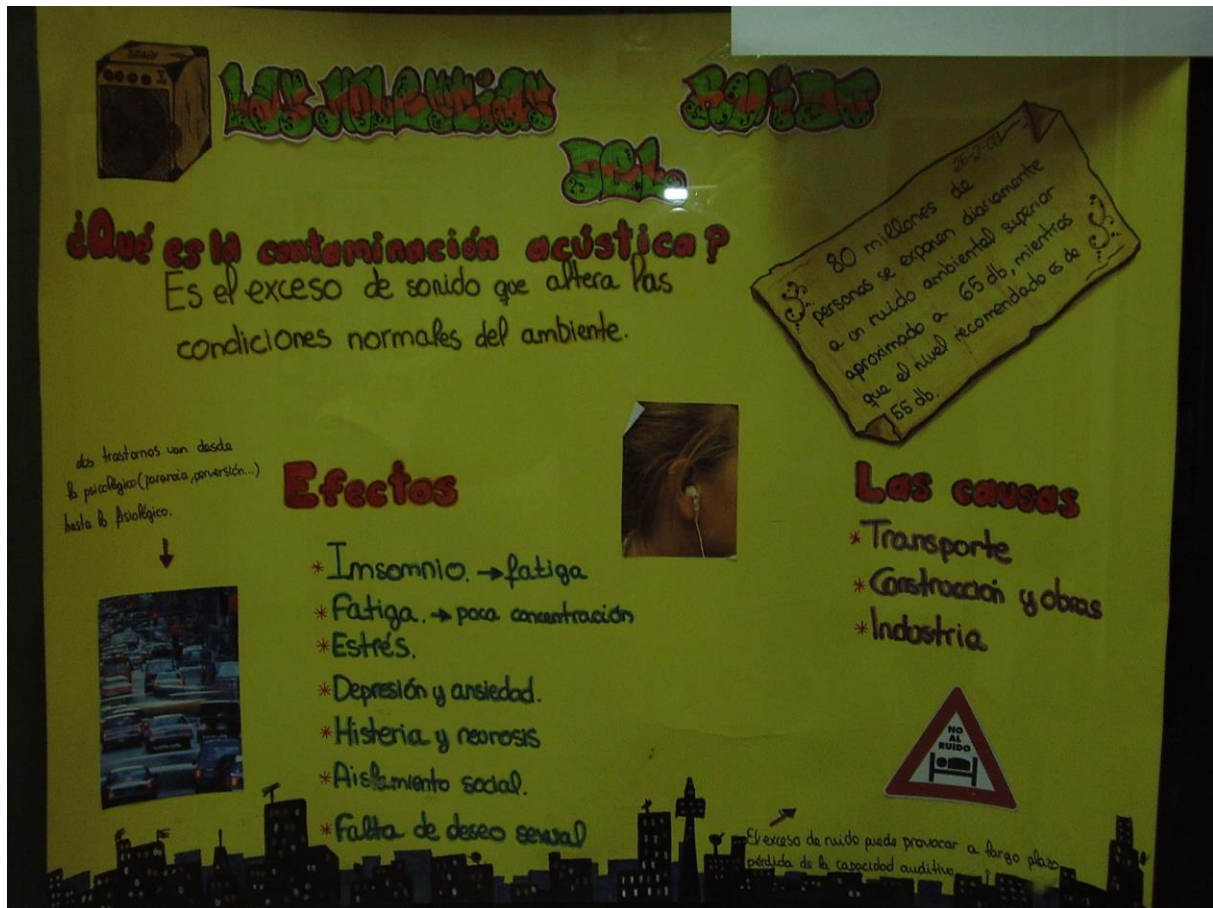 LAS MOLESTIAS
DEL
RUIDO
26-2-03
80 millones de
personas se exponen diariamente
a un ruido ambiental superior
aproximado a 65 db, mientras
que el nivel recomendado es de
55 db.
¿Qué es la contaminación acústica?
Es el exceso de sonido que altera las
condiciones normales del ambiente.
los trastornos van desde
lo psicológico (paranoia, perversión...)
hasta lo fisiológico.
Efectos
*Imsomnio. →fatiga
*Fatiga. → poca concentración
*Estrés.
*Depresión y ansiedad.
*Histeria y neurosis
*Aislamiento social.
*Falta de deseo sexual
Las causas
*Transporte
*Construcción y obras
*Industria
NO
AL
RUIDO
El exceso de ruido puede provocar a largo plazo
pérdida de la capacidad auditiva